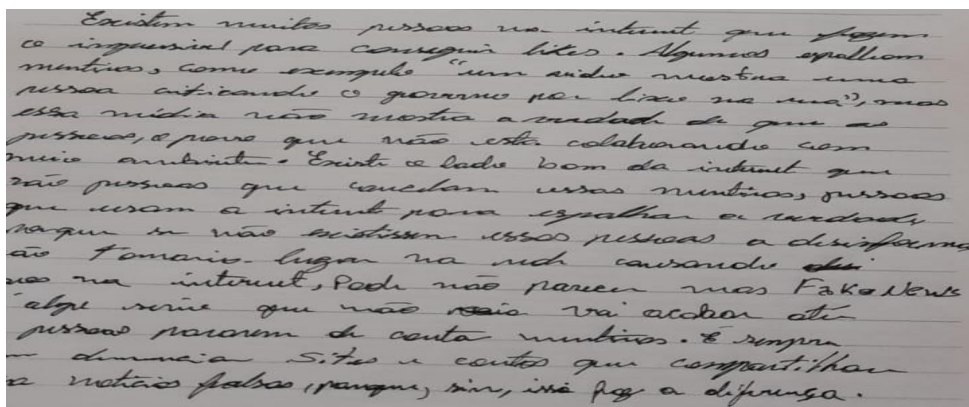 Existem muitas pessoas na internet que fazem
o impossível para conseguir likes. Algumas espalham
mentiras, como exemplo "um vídeo mostra uma
pessoa criticando o governo por lixo na rua", mas
essa mídia não mostra a verdade de que as
pessoas, o povo que não esta colaborando com
meio ambiente. Existe o lado bom da internet que
são pessoas que cancelam essas mentiras, pessoas
que usam a internet para espalhar a verdade,
porque se não existissem essas pessoas a desinforma
ão Tomaria lugar na rede causando
na internet, Pode não parecer mas Fake News
algo serie que não vai acabar até
pessoas pararem de conta mentiras. E sempre
denuncia Sites e contas que compartilham
noticias falsas, porque, sim, isso faz a diferença.